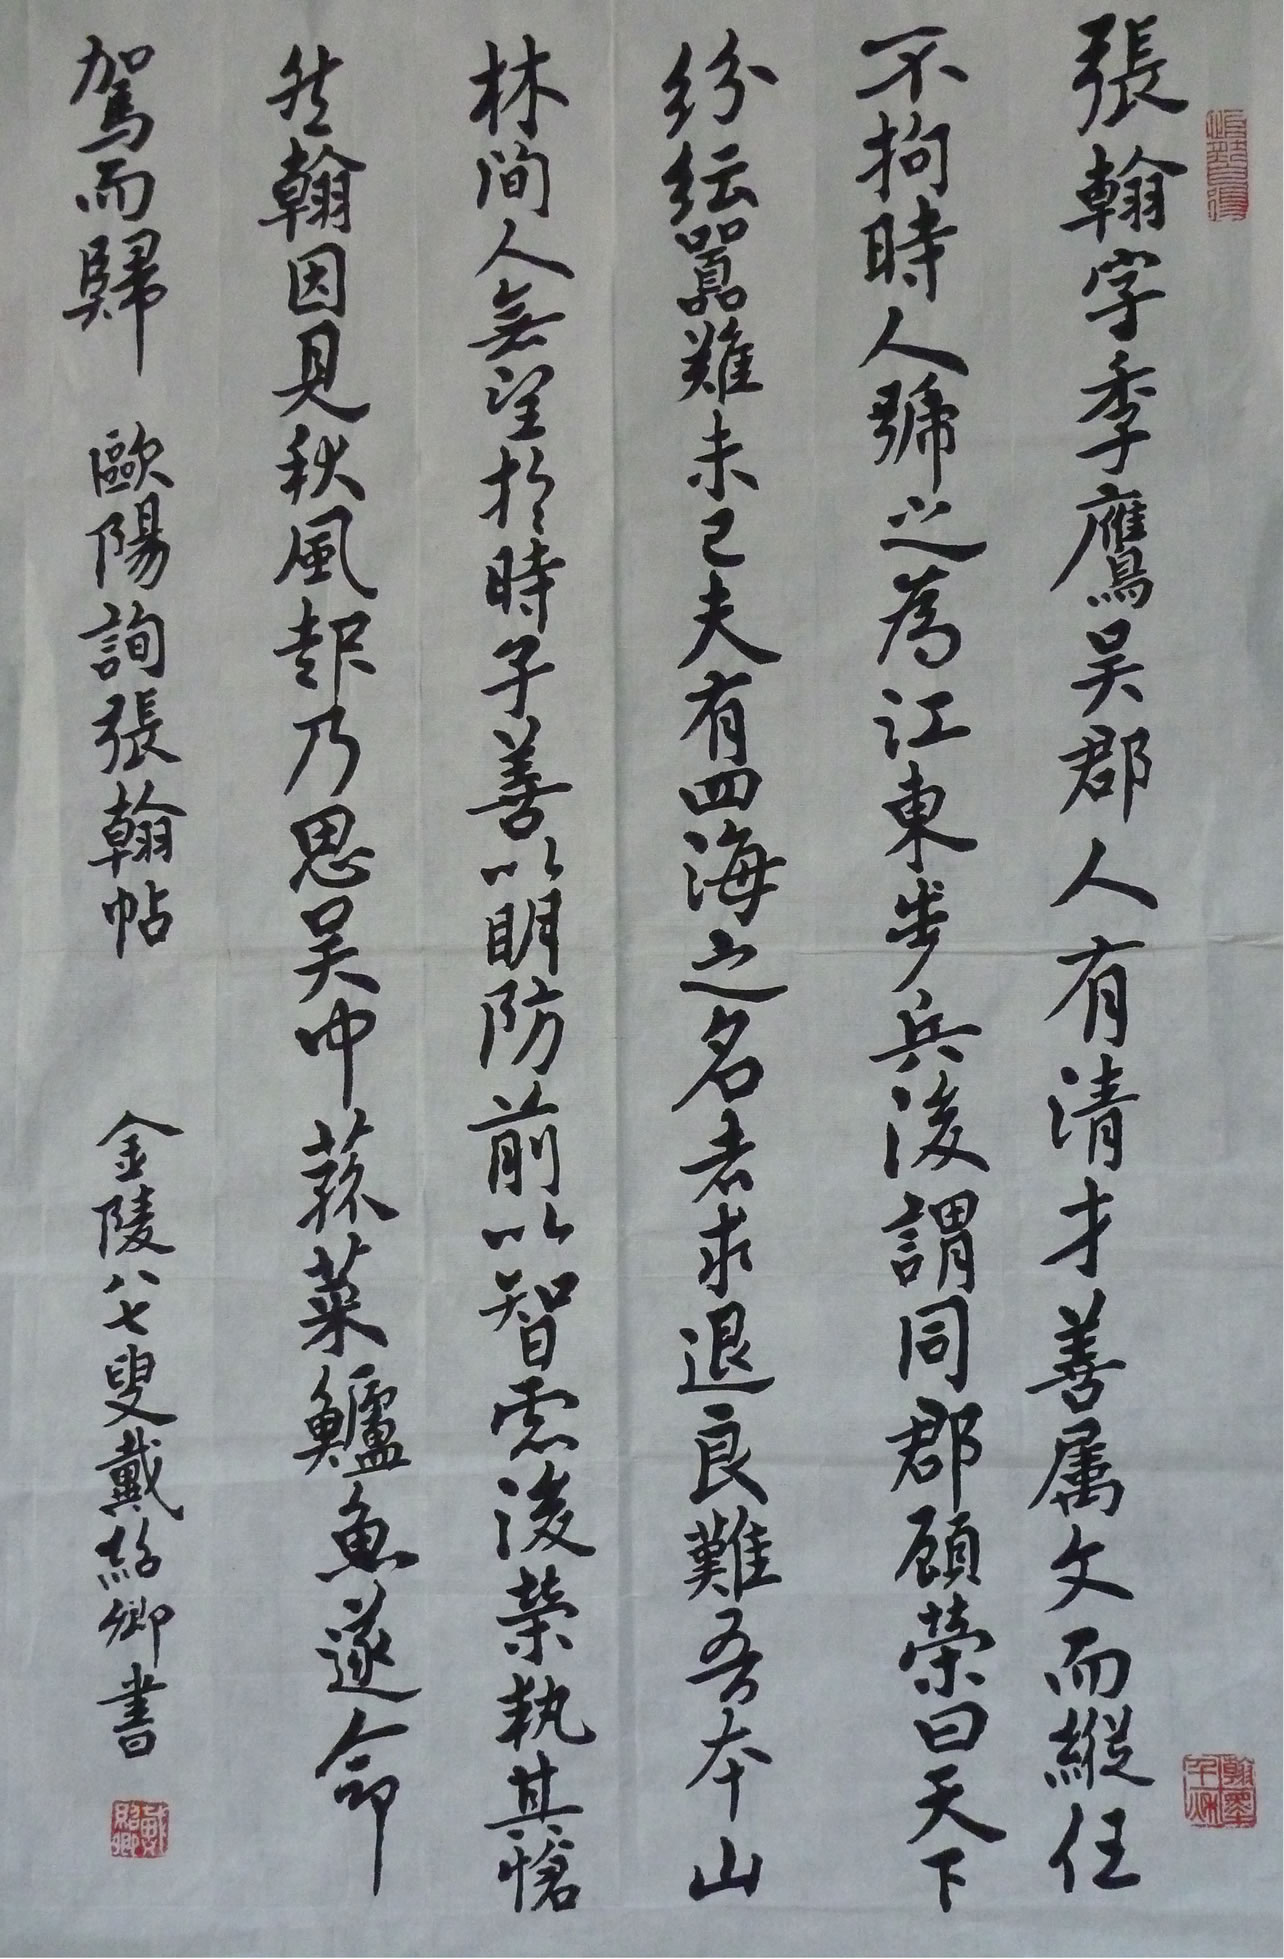 張翰字季鷹吴郡人有清才善属文而縱任
不拘時人號之為江東步兵後謂同郡顧榮曰天下
紛紜嚣難未已夫有四海之名者求退良難吾本山
林間人無望於時子善以明防前以智慮後榮執其愴
然翰因見秋風起乃思吴中菰菜鱸魚遂命
駕而歸 歐陽詢張翰帖 金陵八七叟戴紹卿書
翰墨千秋
戴紹卿